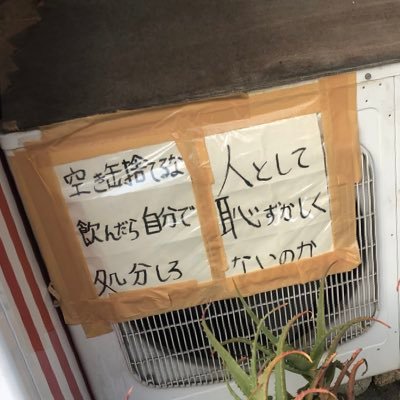 空き缶捨てるな
飲んだら自分で
処分しろ
人として
恥ずかしく
ないのか